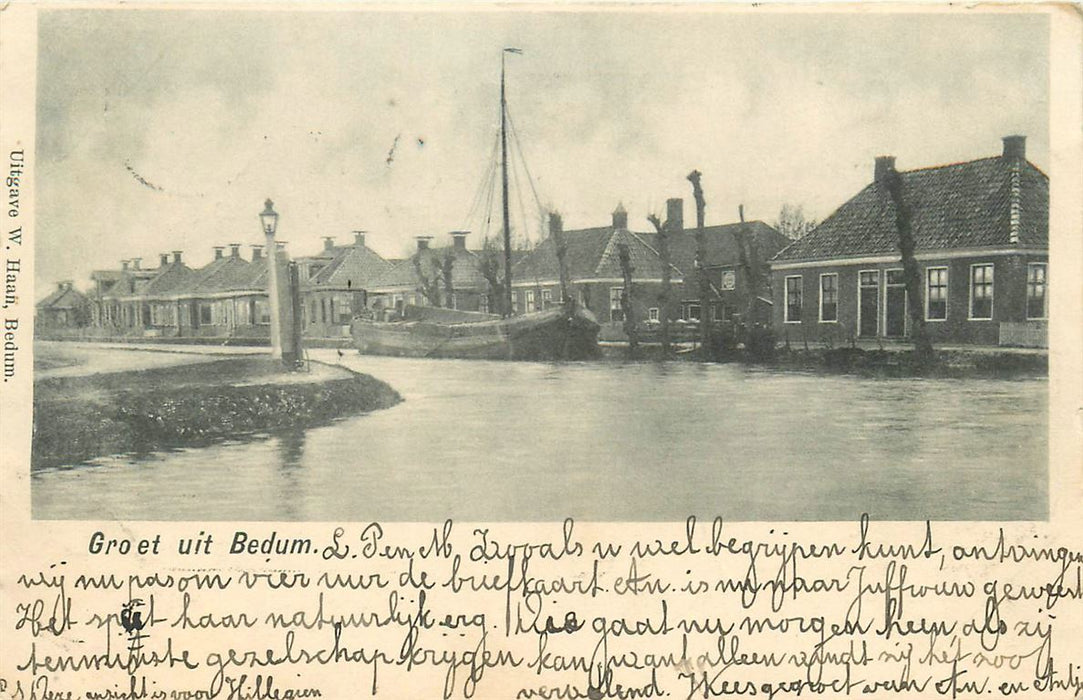 Uitgave W. Haan, Bedum.
Groet uit Bedum.
L. P en M. Zooals u wel begrijpen kunt, ontvingen
wij nu pas om vier uur de briefkaart. An. is nu naar Juffrouw geweest
Het spijt haar natuurlijk erg. Die gaat nu morgen heen als zij
tenminste gezelschap krijgen kan, want alleen vindt zij het zoo
vervelend. Weesgegroet van An. en Antje
P.S. Deze ansicht is voor Hillegien